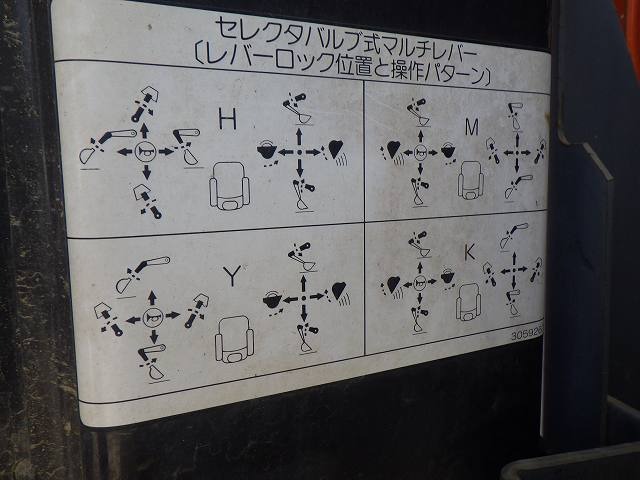 セレクタバルブ式マルチレバー
〔レバーロック位置と操作パターン〕
H
M
Y
K
305926